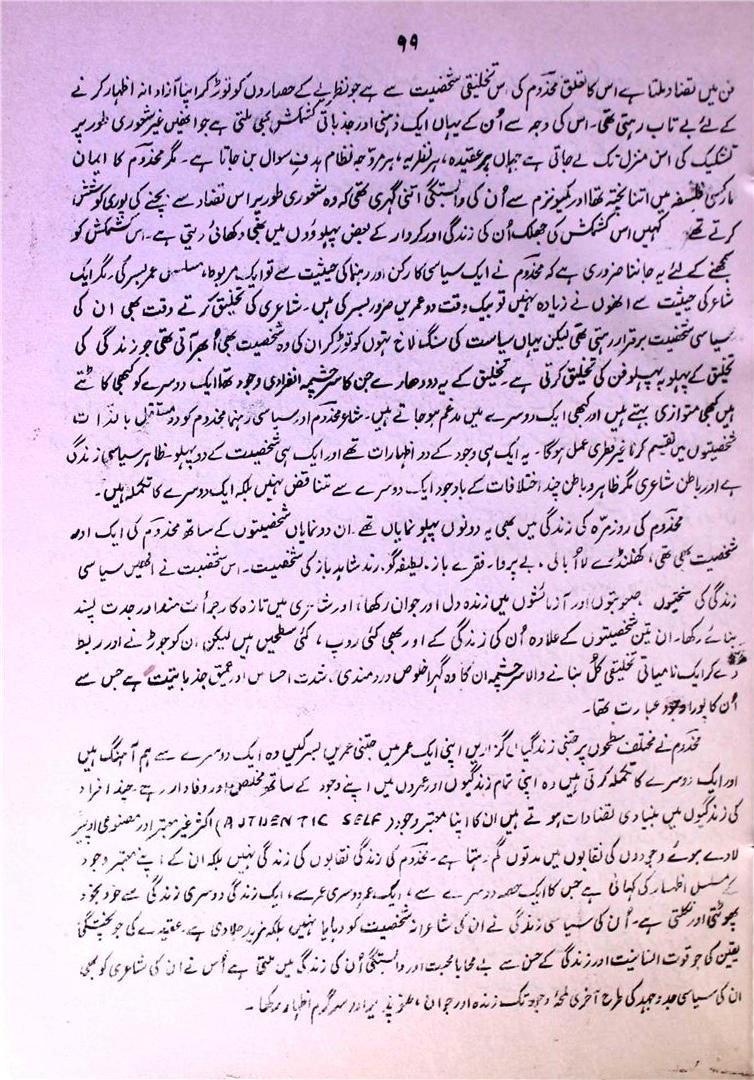 ۹۹
فن میں تضاد ملتا ہے اس کا تعلق مخدوم کی اس تخلیقی شخصیت سے ہے جو نظریے کے حصاروں کو توڑ کر اپنا آزادانہ اظہار کرنے
کے لئے بے تاب رہتی تھی۔ اس کی وجہ سے اُن کے یہاں ایک ذہنی اور جذباتی کشمکش بھی ملتی ہے جو انھیں غیر شعوری طور پر
تشکیک کی اس منزل تک لے جاتی ہے جہاں ہر عقیدہ، ہر نظریہ، ہر مروجہ نظام ہدفِ سوال بن جاتا ہے۔ مگر مخدوم کا ایمان
مارکسی فلسفہ میں اتنا پختہ تھا اور کمیونزم سے اُن کی وابستگی اتنی گہری تھی کہ وہ شعوری طور پر اس تضاد سے بچنے کی پوری کوشش
کرتے تھے کہیں اس کشمکش کی جھلک اُن کی زندگی اور کردار کے بعض پہلوؤں میں بھی دکھائی دیتی ہے۔ اس کشمکش کو
سمجھنے کے لئے یہ جاننا ضروری ہے کہ مخدوم نے ایک سیاسی کارکن اور رہنما کی حیثیت سے تو ایک مربوط، مسلسل عمر بسر کی۔ مگر ایک
شاعر کی حیثیت سے انھوں نے زیادہ نہیں تو بیک وقت دو عمریں ضرور بسر کی ہیں۔ شاعری کی تخلیق کرتے وقت بھی ان کی
سیاسی شخصیت برقرار رہتی تھی لیکن یہاں سیاست کی سنگلاخ تہوں کو توڑ کر ان کی وہ شخصیت بھی اُبھر آتی تھی جو زندگی کی
تخلیق کے پہلو بہ پہلو فن کی تخلیق کرتی ہے۔ تخلیق کے یہ دو دھارے جن کا سرچشمہ انفرادی وجود تھا ایک دوسرے کو کبھی کاٹتے
ہیں کبھی متوازی بہتے ہیں اور کبھی ایک دوسرے میں مدغم ہو جاتے ہیں۔ شاعر مخدوم اور سیاسی رہنما مخدوم کو دو مستقل بالذات
شخصیتوں میں تقسیم کرنا غیر فطری عمل ہوگا۔ یہ ایک ہی وجود کے دو اظہارات تھے اور ایک ہی شخصیت کے دو پہلو۔ ظاہر سیاسی زندگی
ہے اور باطن شاعری مگر ظاہر و باطن چند اختلافات کے باوجود ایک دوسرے سے متناقض نہیں بلکہ ایک دوسرے کا تکملہ ہیں۔
مخدوم کی روزمرّہ کی زندگی میں بھی یہ دونوں پہلو نمایاں تھے۔ ان دو نمایاں شخصیتوں کے ساتھ مخدوم کی ایک اور
شخصیت بھی تھی، کھلنڈرے لااُبالی، بے پروا، فقرے باز، لطیفہ گو، رند شاہد باز کی شخصیت۔ اس شخصیت نے انھیں سیاسی
زندگی کی سختیوں صعوبتوں اور آزمائشوں میں زندہ دل اور جوان رکھا، اور شاعری میں تازہ کار جرأت مند اور جدت پسند
بنائے رکھا۔ ان تین شخصیتوں کے علاوہ اُن کی زندگی کے اور بھی کئی روپ، کئی سطحیں ہیں لیکن ان کو جوڑنے اور ربط
دے کر ایک نامیاتی تخلیقی کُل بنانے والا سرچشمہ ان کا وہ گہرا خلوص، دردمندی، شدت احساس اور عمیق جذباتیت ہے جس سے
اُن کا پورا وجود عبارت تھا۔
مخدوم نے مختلف سطحوں پر جتنی زندگیاں گزاریں اپنی ایک عمر میں جتنی عمریں بسر کیں وہ ایک دوسرے سے ہم آہنگ ہیں
اور ایک دوسرے کا تکملہ کرتی ہیں وہ اپنی تمام زندگیوں اور عمروں میں اپنے وجود کے ساتھ مخلص اور وفادار رہے۔ جن افراد
کی زندگیوں میں بنیادی تضادات ہوتے ہیں ان کا اپنا معتبر وجود (AUTHENTIC SELF) اکثر غیر معتبر اور مصنوعی اوپر
لادے ہوئے وجودوں کی نقابوں میں مدتوں گم رہتا ہے۔ مخدوم کی زندگی نقابوں کی زندگی نہیں بلکہ ان کے اپنے معتبر وجود
کے مسلسل اظہار کی کہانی ہے جس کا ایک حصہ دوسرے سے، ایک عمر دوسری عمر سے، ایک زندگی دوسری زندگی سے خود بخود
پھوٹتی اور نکلتی ہے۔ اُن کی سیاسی زندگی نے ان کی شاعرانہ شخصیت کو دبایا نہیں بلکہ مزید جلا دی ہے۔ عقیدے کی جو پختگی
یقین کی جو قوت انسانیت اور زندگی کے حسن سے بے محابا محبت اور وابستگی اُن کی زندگی میں ملتی ہے اُس نے ان کی شاعری کو بھی
ان کی سیاسی جدوجہد کی طرح آخری لمحۂ وجود تک زندہ اور جوان، اور سرگرم اظہار رکھا۔